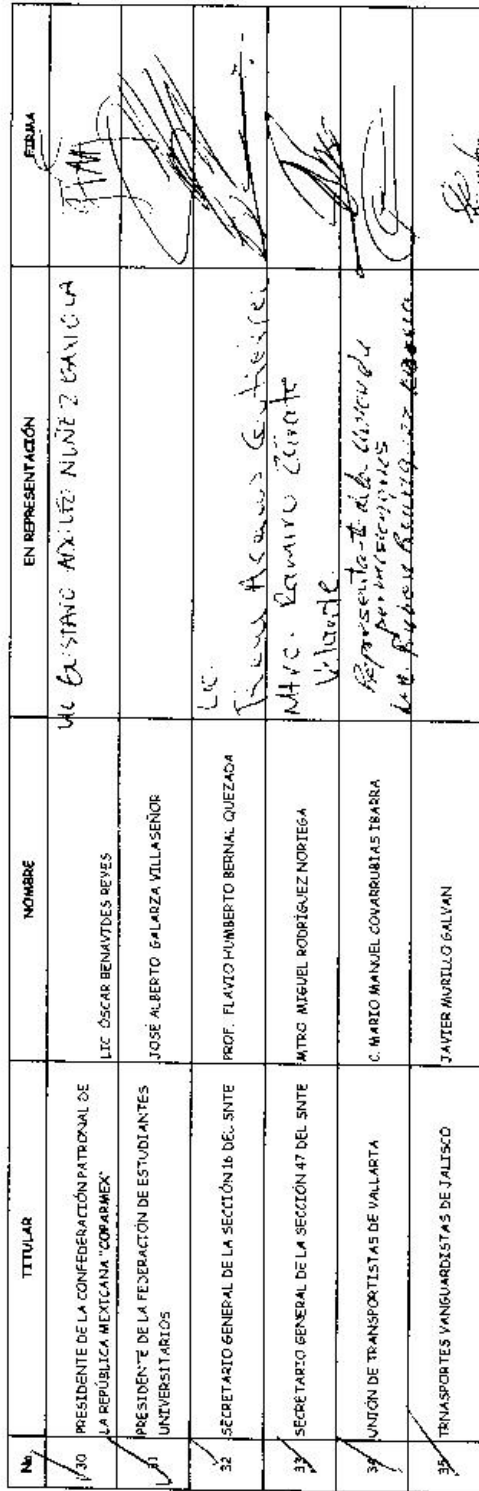 No. TITULAR NOMBRE EN REPRESENTACIÓN FIRMA
30 PRESIDENTE DE LA CONFEDERACIÓN PATRONAL DE LA REPÚBLICA MEXICANA "COPARMEX" LIC ÓSCAR BENAVIDES REYES Lic GUSTAVO NUÑEZ
31 PRESIDENTE DE LA FEDERACIÓN DE ESTUDIANTES UNIVERSITARIOS JOSÉ ALBERTO GALARZA VILLASEÑOR
32 SECRETARIO GENERAL DE LA SECCIÓN 16 DEL SNTE PROF. FLAVIO HUMBERTO BERNAL QUEZADA Lic. Gutiérrez
33 SECRETARIO GENERAL DE LA SECCIÓN 47 DEL SNTE MTRO MIGUEL RODRÍGUEZ NORIEGA Mtro. Ramiro Zárate Velarde.
34 UNIÓN DE TRANSPORTISTAS DE VALLARTA C. MARIO MANUEL COVARRUBIAS IBARRA Ruben
35 TRNASPORTES VANGUARDISTAS DE JALISCO JAVIER MURILLO GALVAN